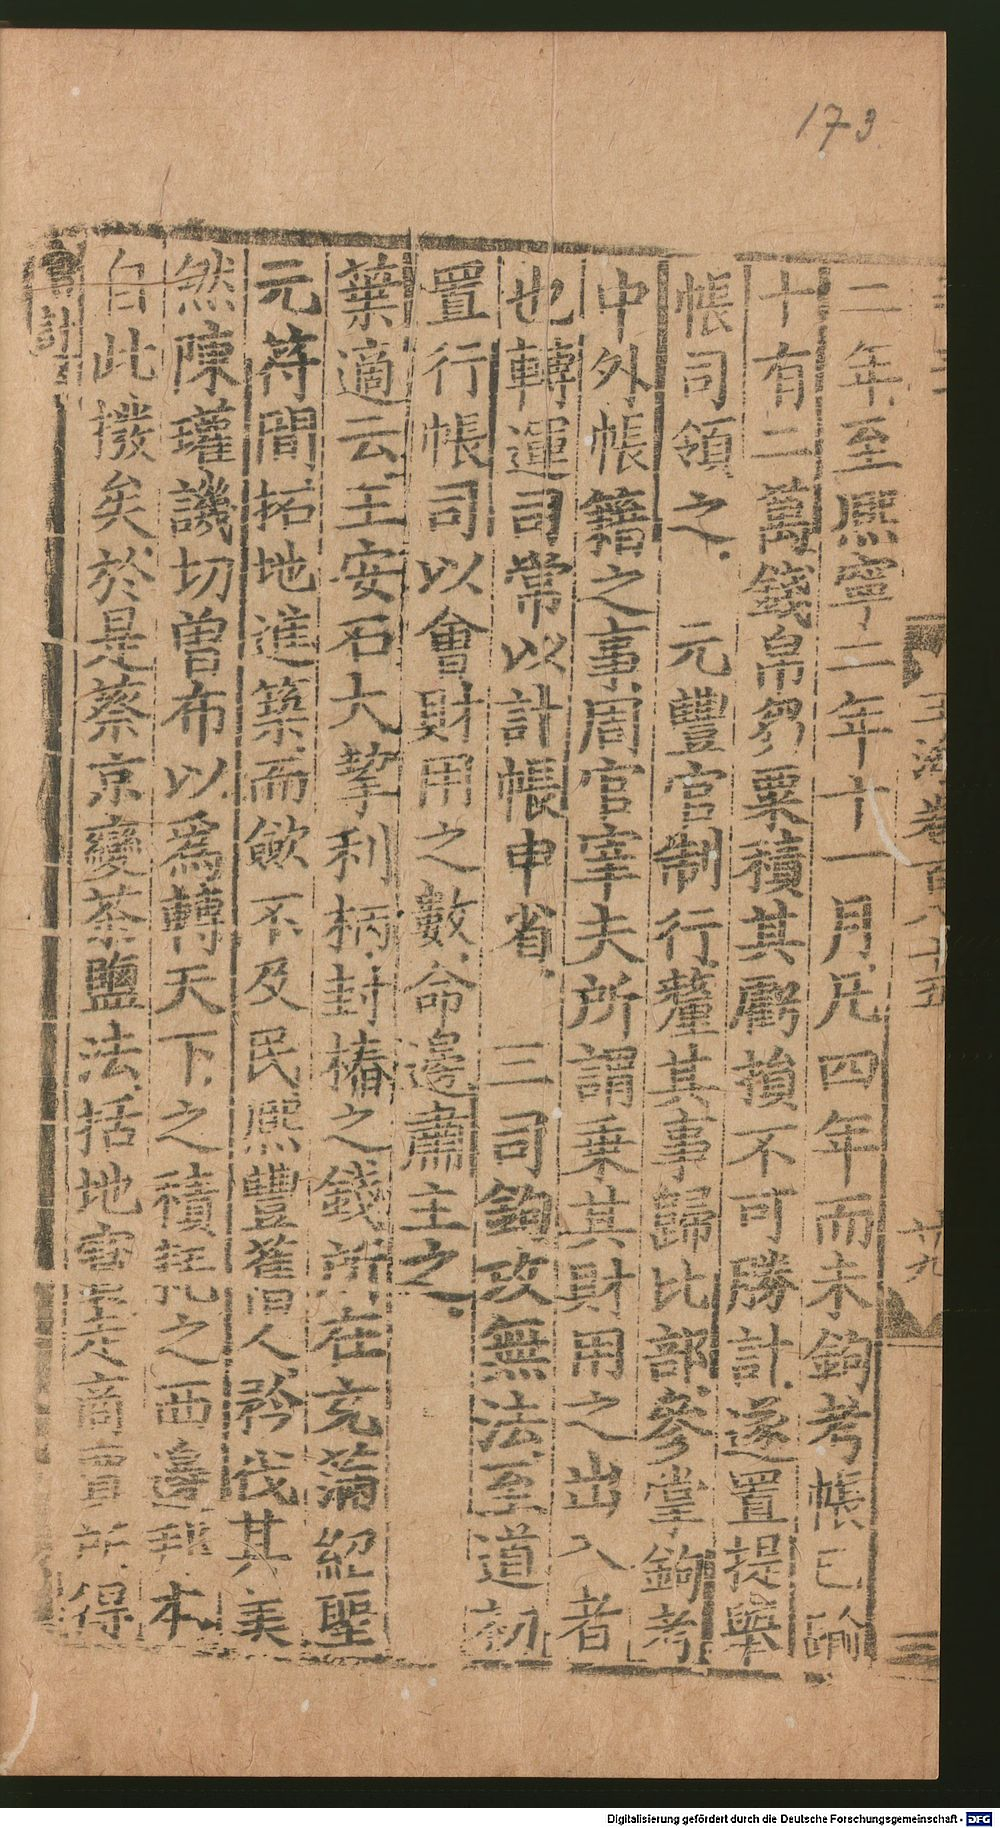 173
玉海卷百八十五
廿九
二年至熙寧二年十一月凡四年而未鉤考帳已踰
十有二萬錢帛芻粟積其虧損不可勝計遂置提舉
帳司領之　元豐官制行釐其事歸比部參掌鉤考
中外帳籍之事周官宰夫所謂乗其財用之出入者
也轉運司常以計帳申省　三司鉤攷無法至道初
置行帳司以會財用之數命邊肅主之
葉適云王安石大挈利柄封樁之錢所在充滿紹聖
元符間拓地進築而歛不及民熙豐舊人矜伐其美
然陳瓘譏切曽布以爲轉天下之積耗之西邊邦本
自此撥矣於是蔡京變茶鹽法括地寳走商賈所得
會計
Digitalisierung gefördert durch die Deutsche Forschungsgemeinschaft - DFG